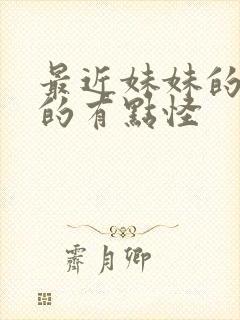 最近妹妹的
的有點怪
霽月卿